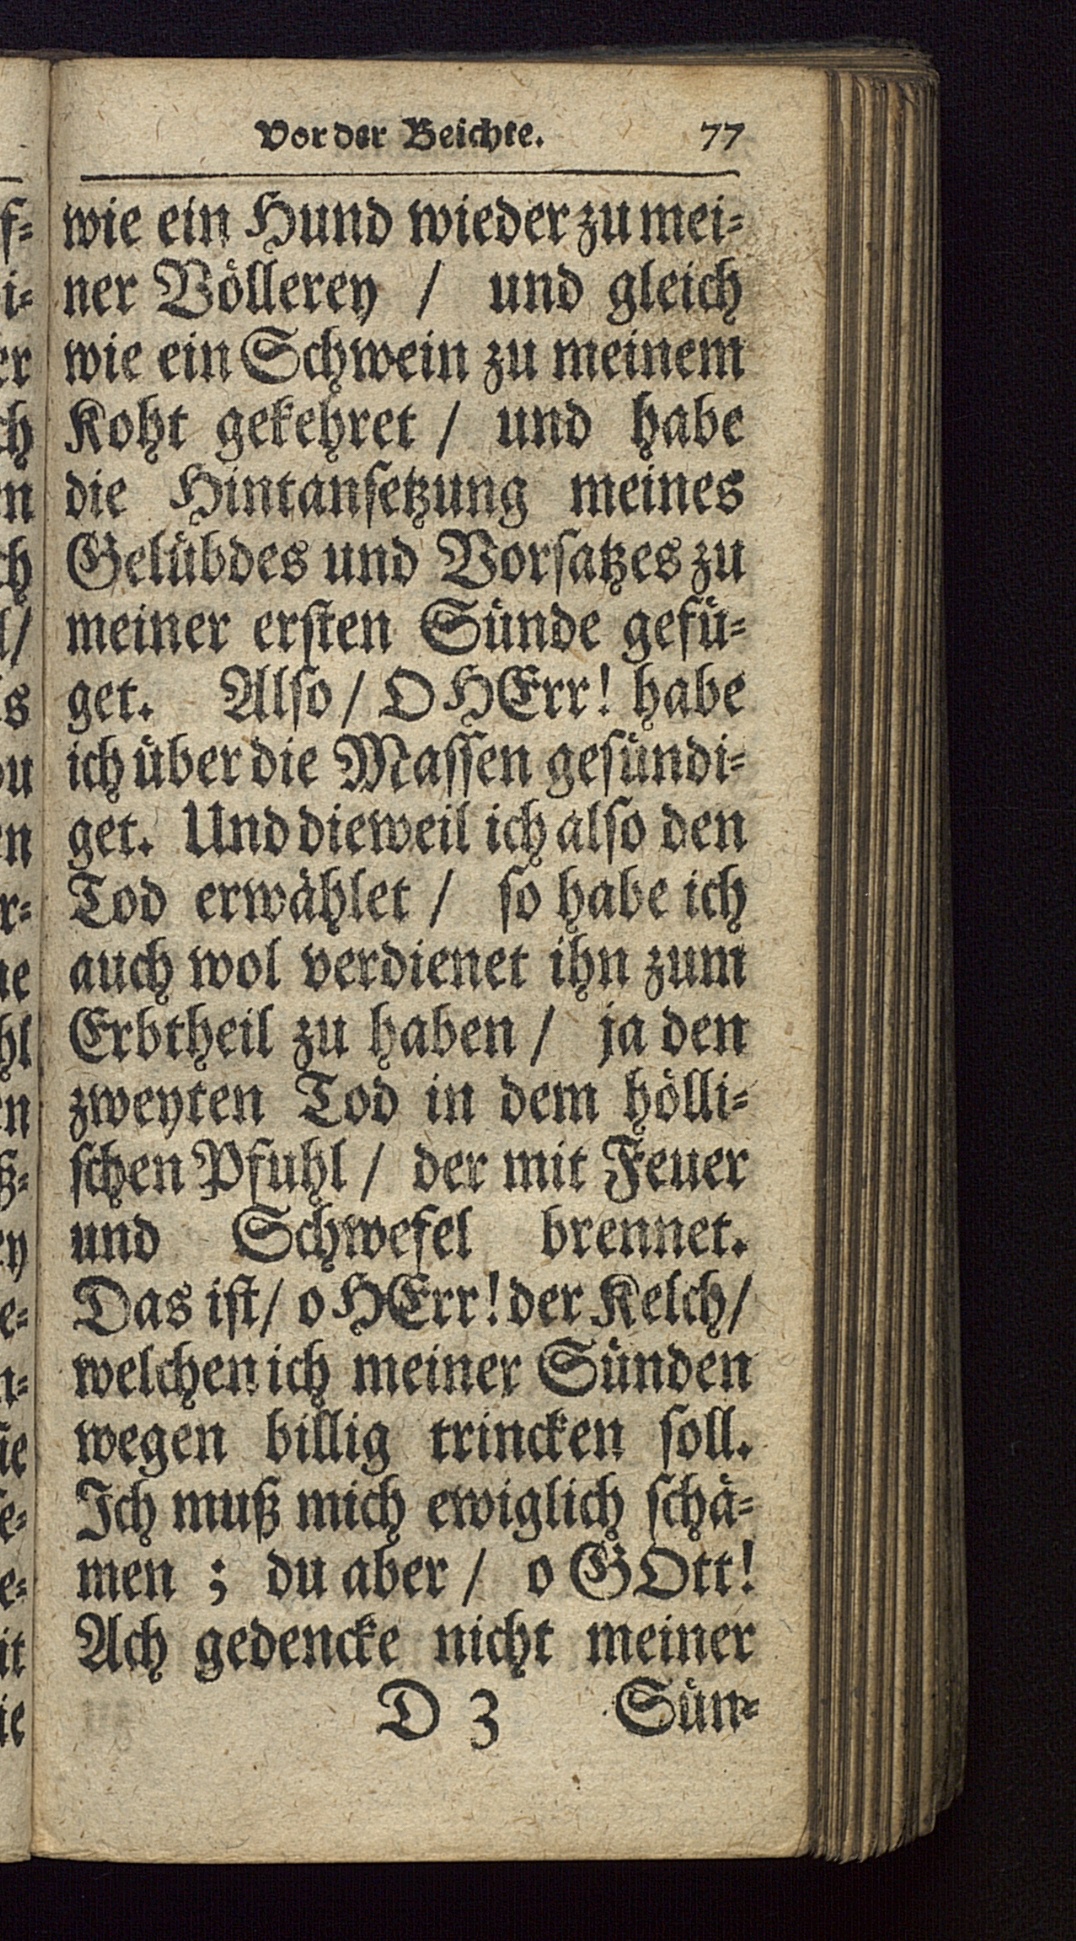 Vor der Beichte. 77
wie ein Hund wieder zu mei⸗
ner Völlerey / und gleich
wie ein Schwein zu meinem
Koht gekehret / und habe
die Hintanſetzung meines
Gelübdes und Vorſatzes zu
meiner erſten Sünde gefü⸗
get. Alſo / O HErr! habe
ich über die Maſſen geſündi⸗
get. Und dieweil ich alſo den
Tod erwählet / ſo habe ich
auch wol verdienet ihn zum
Erbtheil zu haben / ja den
zweyten Tod in dem hölli⸗
ſchen Pfuhl / der mit Feuer
und Schwefel brennet.
Das iſt / o HErr! der Kelch /
welchen ich meiner Sünden
wegen billig trincken ſoll.
Ich muß mich ewiglich ſchä⸗
men ; du aber / o GOtt!
Ach gedencke nicht meiner
D 3 Sün⸗